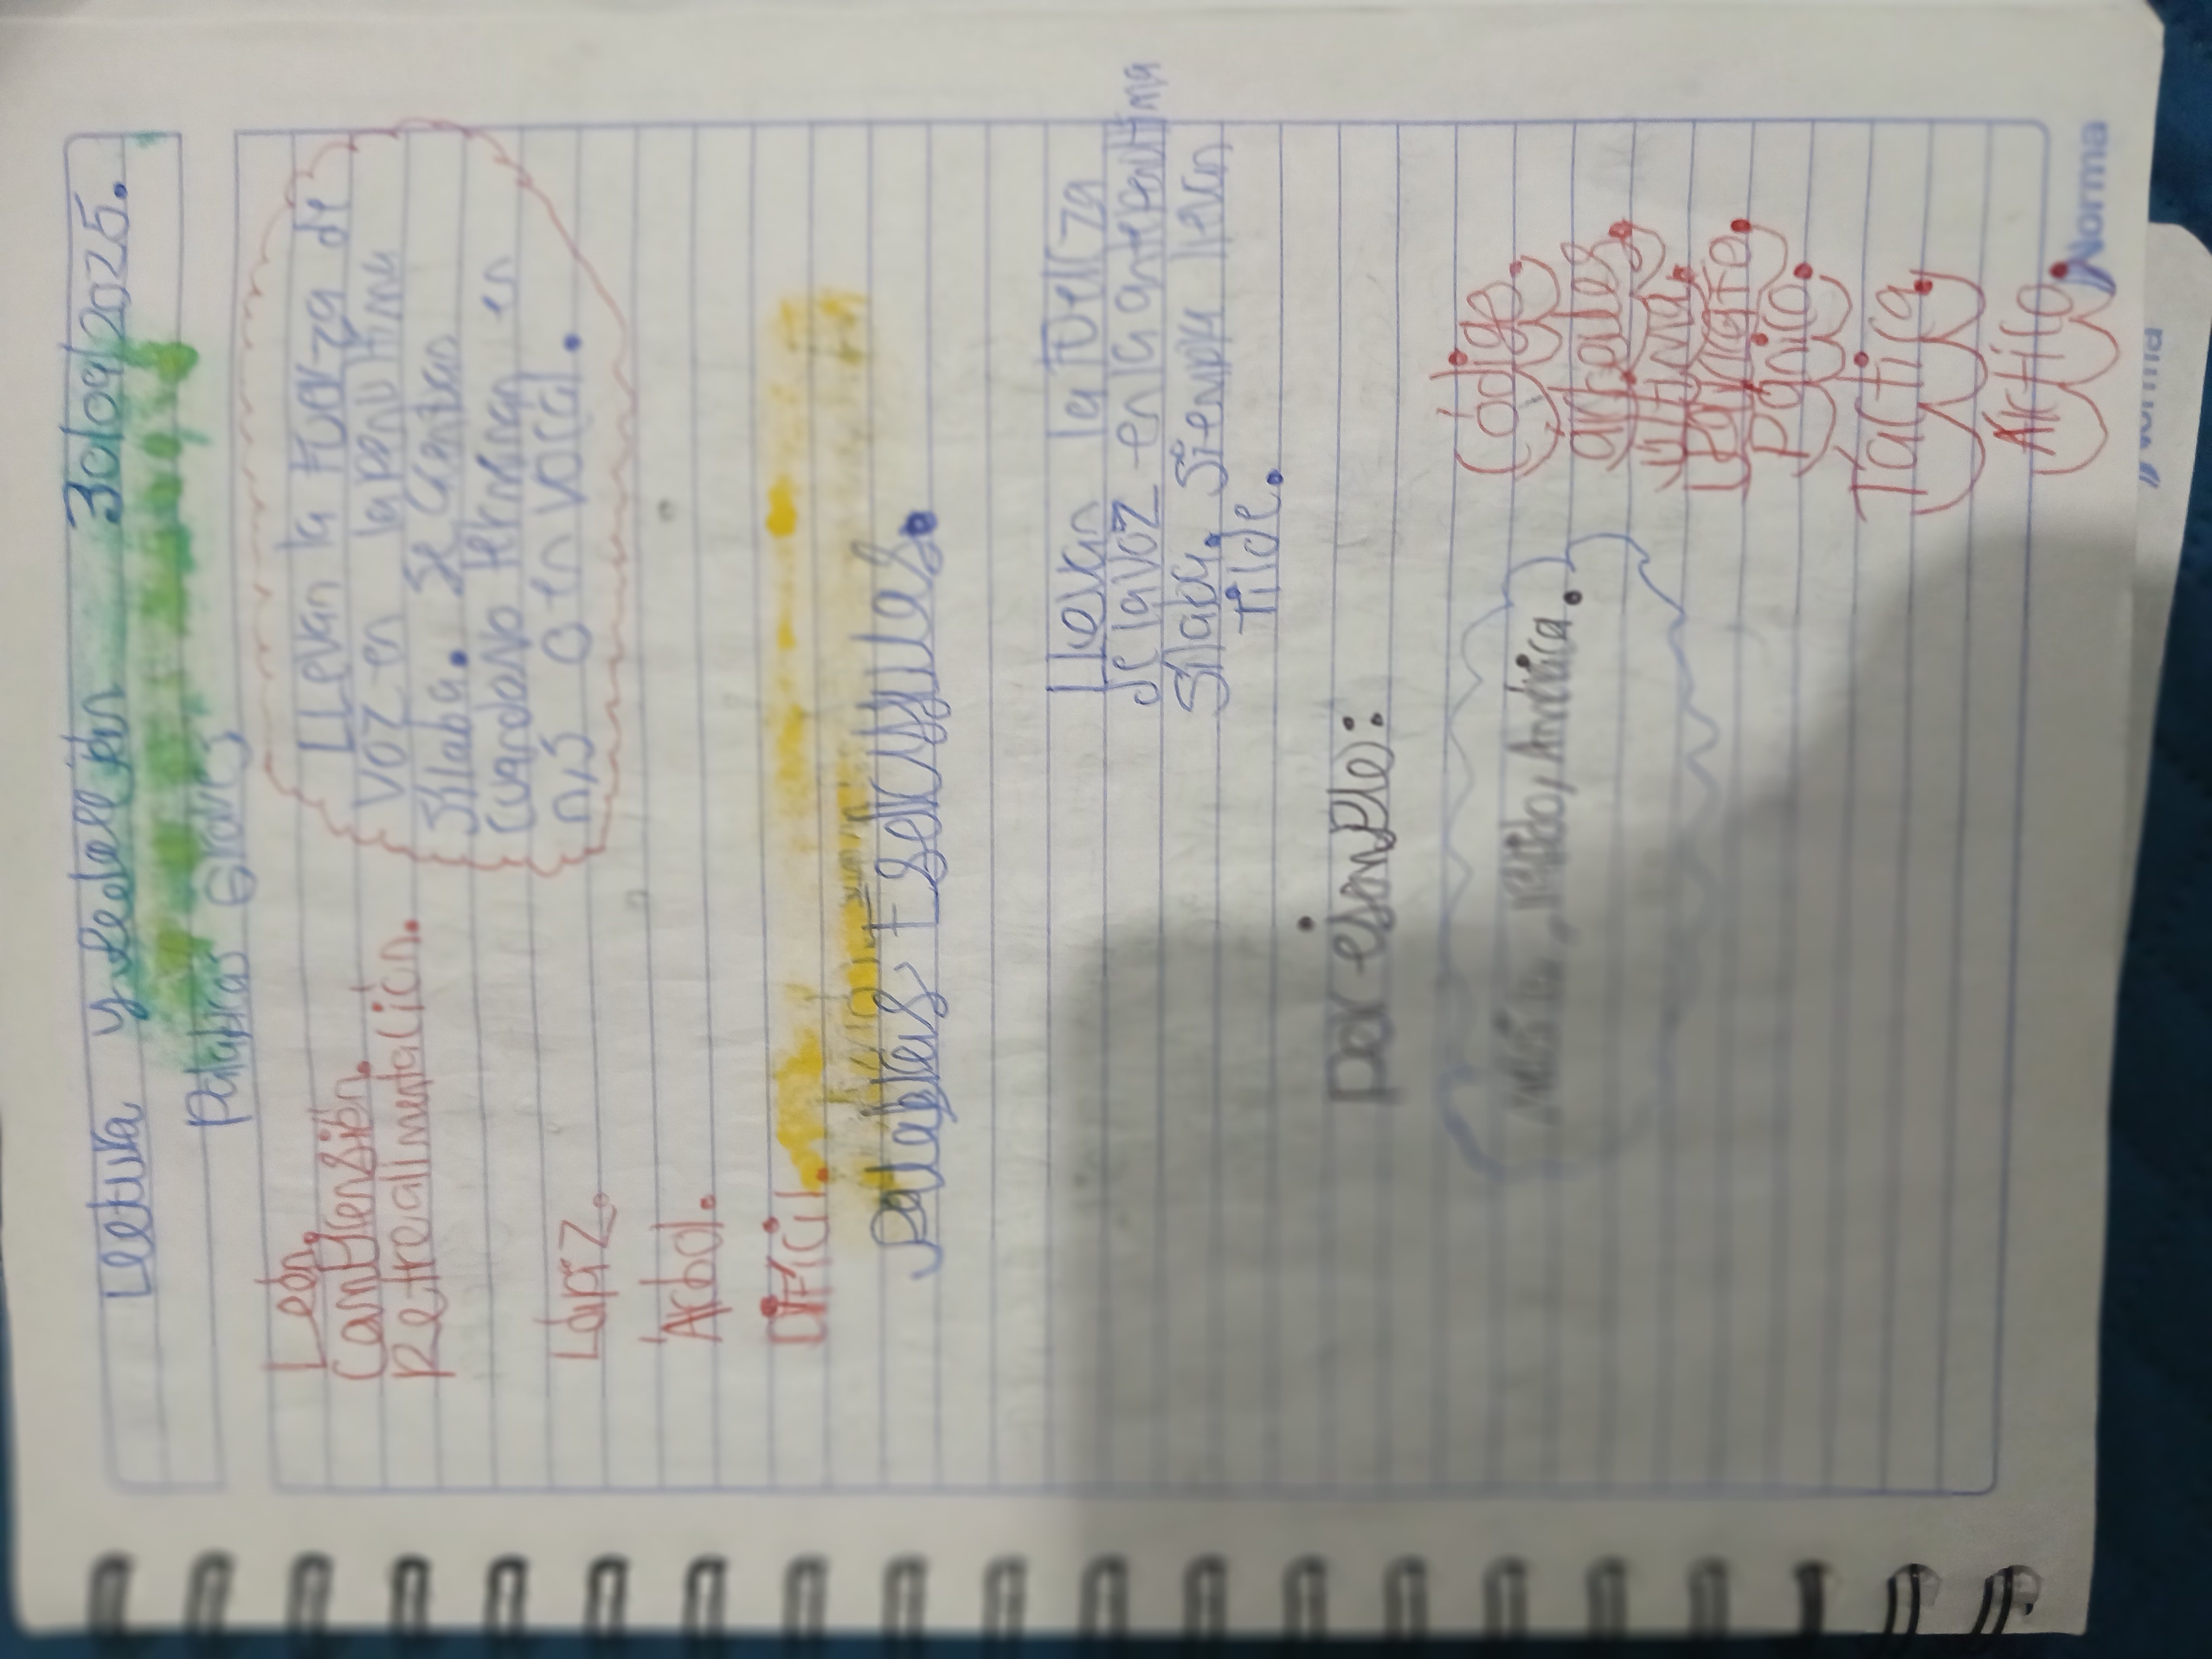 Lectura y redacción 30/09/2025.
Palabras Graves
León.
Comprensión.
Retroalimentación.
LLevan la fuerza de
voz en la penúltima
sílaba. Se acentúan
cuando no terminan en
n,s o en vocal.
Lápiz.
Árbol.
Difícil.
Palabras Esdrújulas.
Llevan la fuerza
de la voz en la antepenúltima
sílaba. Siempre llevan
tilde.
por ejemple:
música, rápido, América.
Código.
última.
Pánico.
Táctica.
Ártico.
Norma